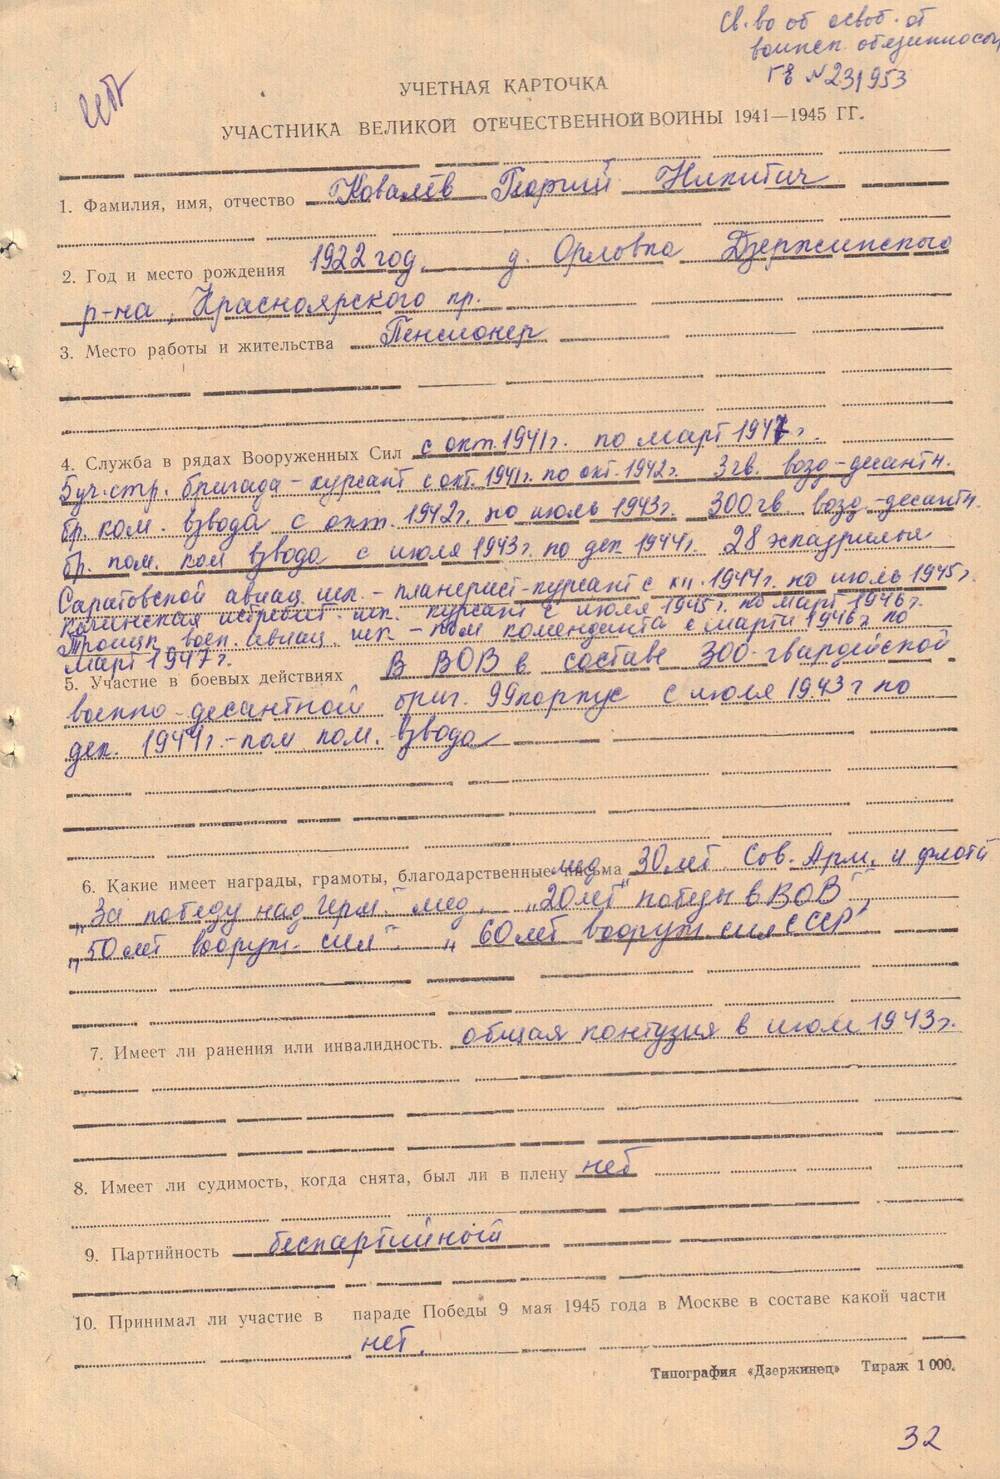 Св-во об освоб. от
воинск. обязанносом
ГБ № 231953
УЧЕТНАЯ КАРТОЧКА
УЧАСТНИКА ВЕЛИКОЙ ОТЕЧЕСТВЕННОЙ ВОЙНЫ 1941—1945 ГГ.
1. Фамилия, имя, отчество Ковалёв Георгий Никитич
2. Год и место рождения 1922 год, д. Орловка Дзержинского
р-на, Красноярского кр.
3. Место работы и жительства Пенсионер
4. Служба в рядах Вооруженных Сил с окт 1941г. по март 1947г.
5 уч. стр. бригада - курсант с окт. 1941г. по окт. 1942г. 3 гв. возд-десантн.
бр. ком. взвода с окт. 1942г. по июль 1943г. 300 гв. возд-десантн.
бр. пом. ком взвода с июля 1943г. по дек 1944г. 28 эскадрилья
Саратовской авиац. шк. - планерист-курсант с 1944г. по июль 1945г.
истребит. шк. курсант с июля 1945г. по март 1946г.
Троицк. воен. авиац. шк - пом коменданта с марта 1946г по
март 1947г.
5. Участие в боевых действиях В ВОВ в составе 300-гвардейской
военно-десантной бриг. 99 корпус с июля 1943г по
дек. 1944г. - пом ком. взвода
6. Какие имеет награды, грамоты, благодарственные письма мед 30 лет Сов. Арм. и флота
„За победу над Герм." мед. „20 лет" победы в ВОВ",
„50 лет вооруж. сил" „60 лет вооруж сил СССР"
7. Имеет ли ранения или инвалидность. общая контузия в июле 1943г.
8. Имеет ли судимость, когда снята, был ли в плену нет
9. Партийность беспартийный
10. Принимал ли участие в параде Победы 9 мая 1945 года в Москве в составе какой части
нет.
Типография «Дзержинец» Тираж 1 000.
32